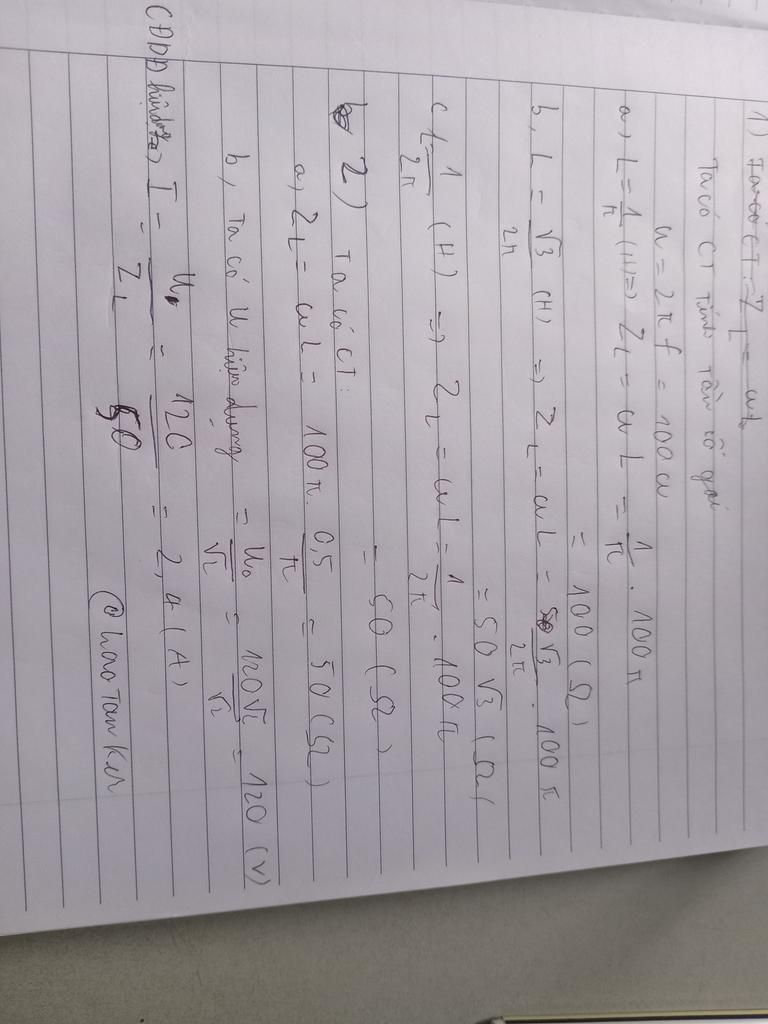 1) Ta có CT: Z_L = ωL
Ta có CT tính tần số góc
ω = 2πf = 100ω
a, L = 1/π (H) => Z_L = ωL = 1/π . 100π
= 100 (Ω)
b, L = √3/2π (H) => Z_L = ωL = √3/2π . 100π
= 50√3 (Ω)
c L = 1/2π (H) => Z_L = ωL = 1/2π . 100π
= 50 (Ω)
2) Ta có CT:
a, Z_L = ωL = 100π . 0,5/π = 50 (Ω)
b, Ta có U hiệu dụng = U₀/√2 = 120√2/√2 = 120 (V)
CĐDĐ hiệu dụng I = U/Z_L = 120/50 = 2,4 (A)
@haoTanKer